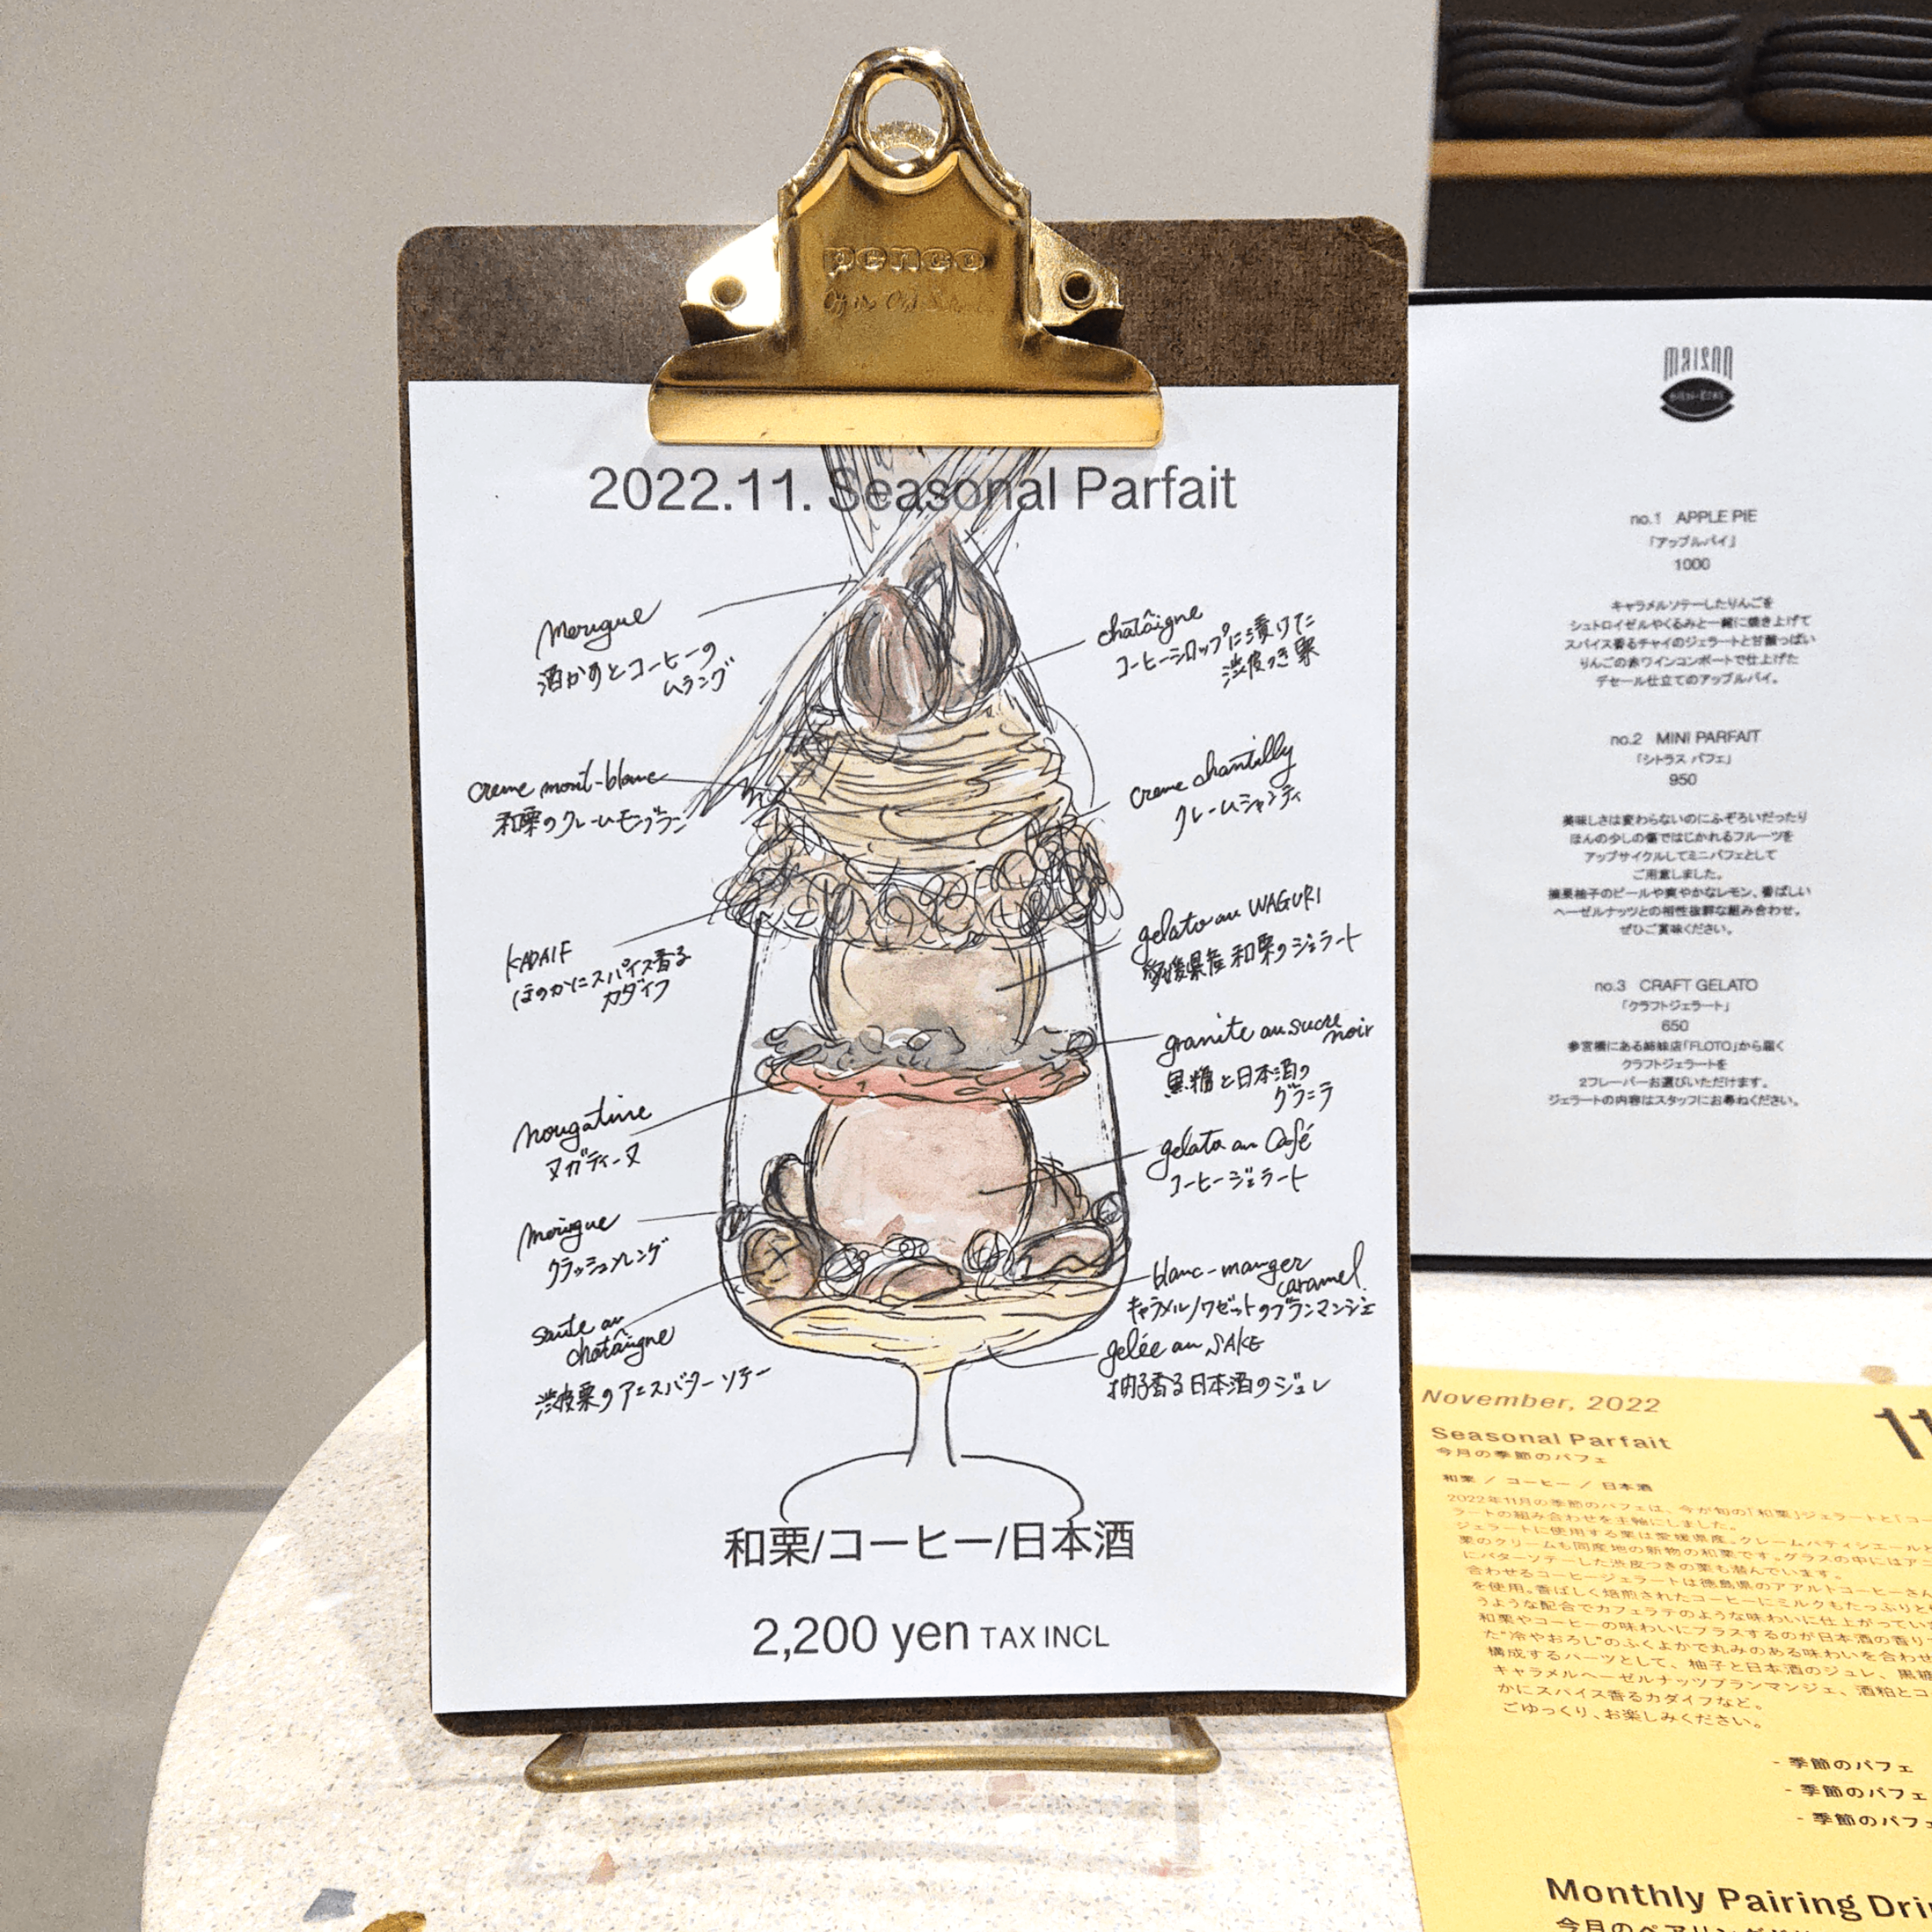 penco
2022.11. Seasonal Parfait
merigue
酒かすとコーヒーの
ムラング
chatâigne
コーヒーシロップに漬けた
渋皮つき栗
creme mont-blanc
和栗のクレームモンブラン
creme chantilly
クレームシャンティ
KADAIF
ほのかにスパイス香る
カダイフ
gelato au WAGURI
愛媛県産和栗のジェラート
granite au sucre
noir
黒糖と日本酒の
グラニテ
nougatine
ヌガティーヌ
gelato au Café
コーヒージェラート
merigue
クラッシュムレング
blanc-manger
caramel.
キャラメルノワゼットのブランマンジェ
saute au
chatâigne
渋皮栗のアニスバターソテー
gelée au SAKE
柚子香る日本酒のジュレ
和栗/コーヒー/日本酒
2,200 yen TAX INCL
no.1 APPLE PIE
「アップルパイ」
1000
キャラメルソテーしたりんごを
シュトロイゼルやくるみと一緒に焼き上げて
スパイス香るチャイのジェラートと甘酸っぱい
りんごの赤ワインコンポートで仕上げた
デセール仕立てのアップルパイ。
no.2 MINI PARFAIT
「シトラス パフェ」
950
美味しさは変わらないのにふぞろいだったり
ほんの少しの傷ではじかれるフルーツを
アップサイクルしてミニパフェとして
ご用意しました。
摘果柚子のピールや爽やかなレモン、香ばしい
ヘーゼルナッツとの相性抜群な組み合わせ。
ぜひご賞味ください。
no.3 CRAFT GELATO
「クラフトジェラート」
650
参宮橋にある姉妹店「FLOTO」から届く
クラフトジェラートを
2フレーバーお選びいただけます。
ジェラートの内容はスタッフにお尋ねください。
November, 2022
11
Seasonal Parfait
今月の季節のパフェ
和栗 / コーヒー / 日本酒
2022年11月の季節のパフェは、今が旬の「和栗」ジェラートと「コー
ラートの組み合わせを主軸にしました。
ジェラートに使用する栗は愛媛県産。クレームパティシエールと
栗のクリームも同産地の新物の和栗です。グラスの中にはアニ
にバターソテーした渋皮つきの栗も潜んでいます。
合わせるコーヒージェラートは徳島県のアアルトコーヒーさん
を使用。香ばしく焙煎されたコーヒーにミルクもたっぷりと
うような配合でカフェラテのような味わいに仕上がってい
和栗やコーヒーの味わいにプラスするのが日本酒の香り
た"冷やおろし"のふくよかで丸みのある味わいを合わせ
構成するパーツとして、柚子と日本酒のジュレ、黒糖
キャラメルヘーゼルナッツブランマンジェ、酒粕とコ
かにスパイス香るカダイフなど。
ごゆっくり、お楽しみください。
- 季節のパフェ
- 季節のパフェ
- 季節のパフェ
Monthly Pairing Dri